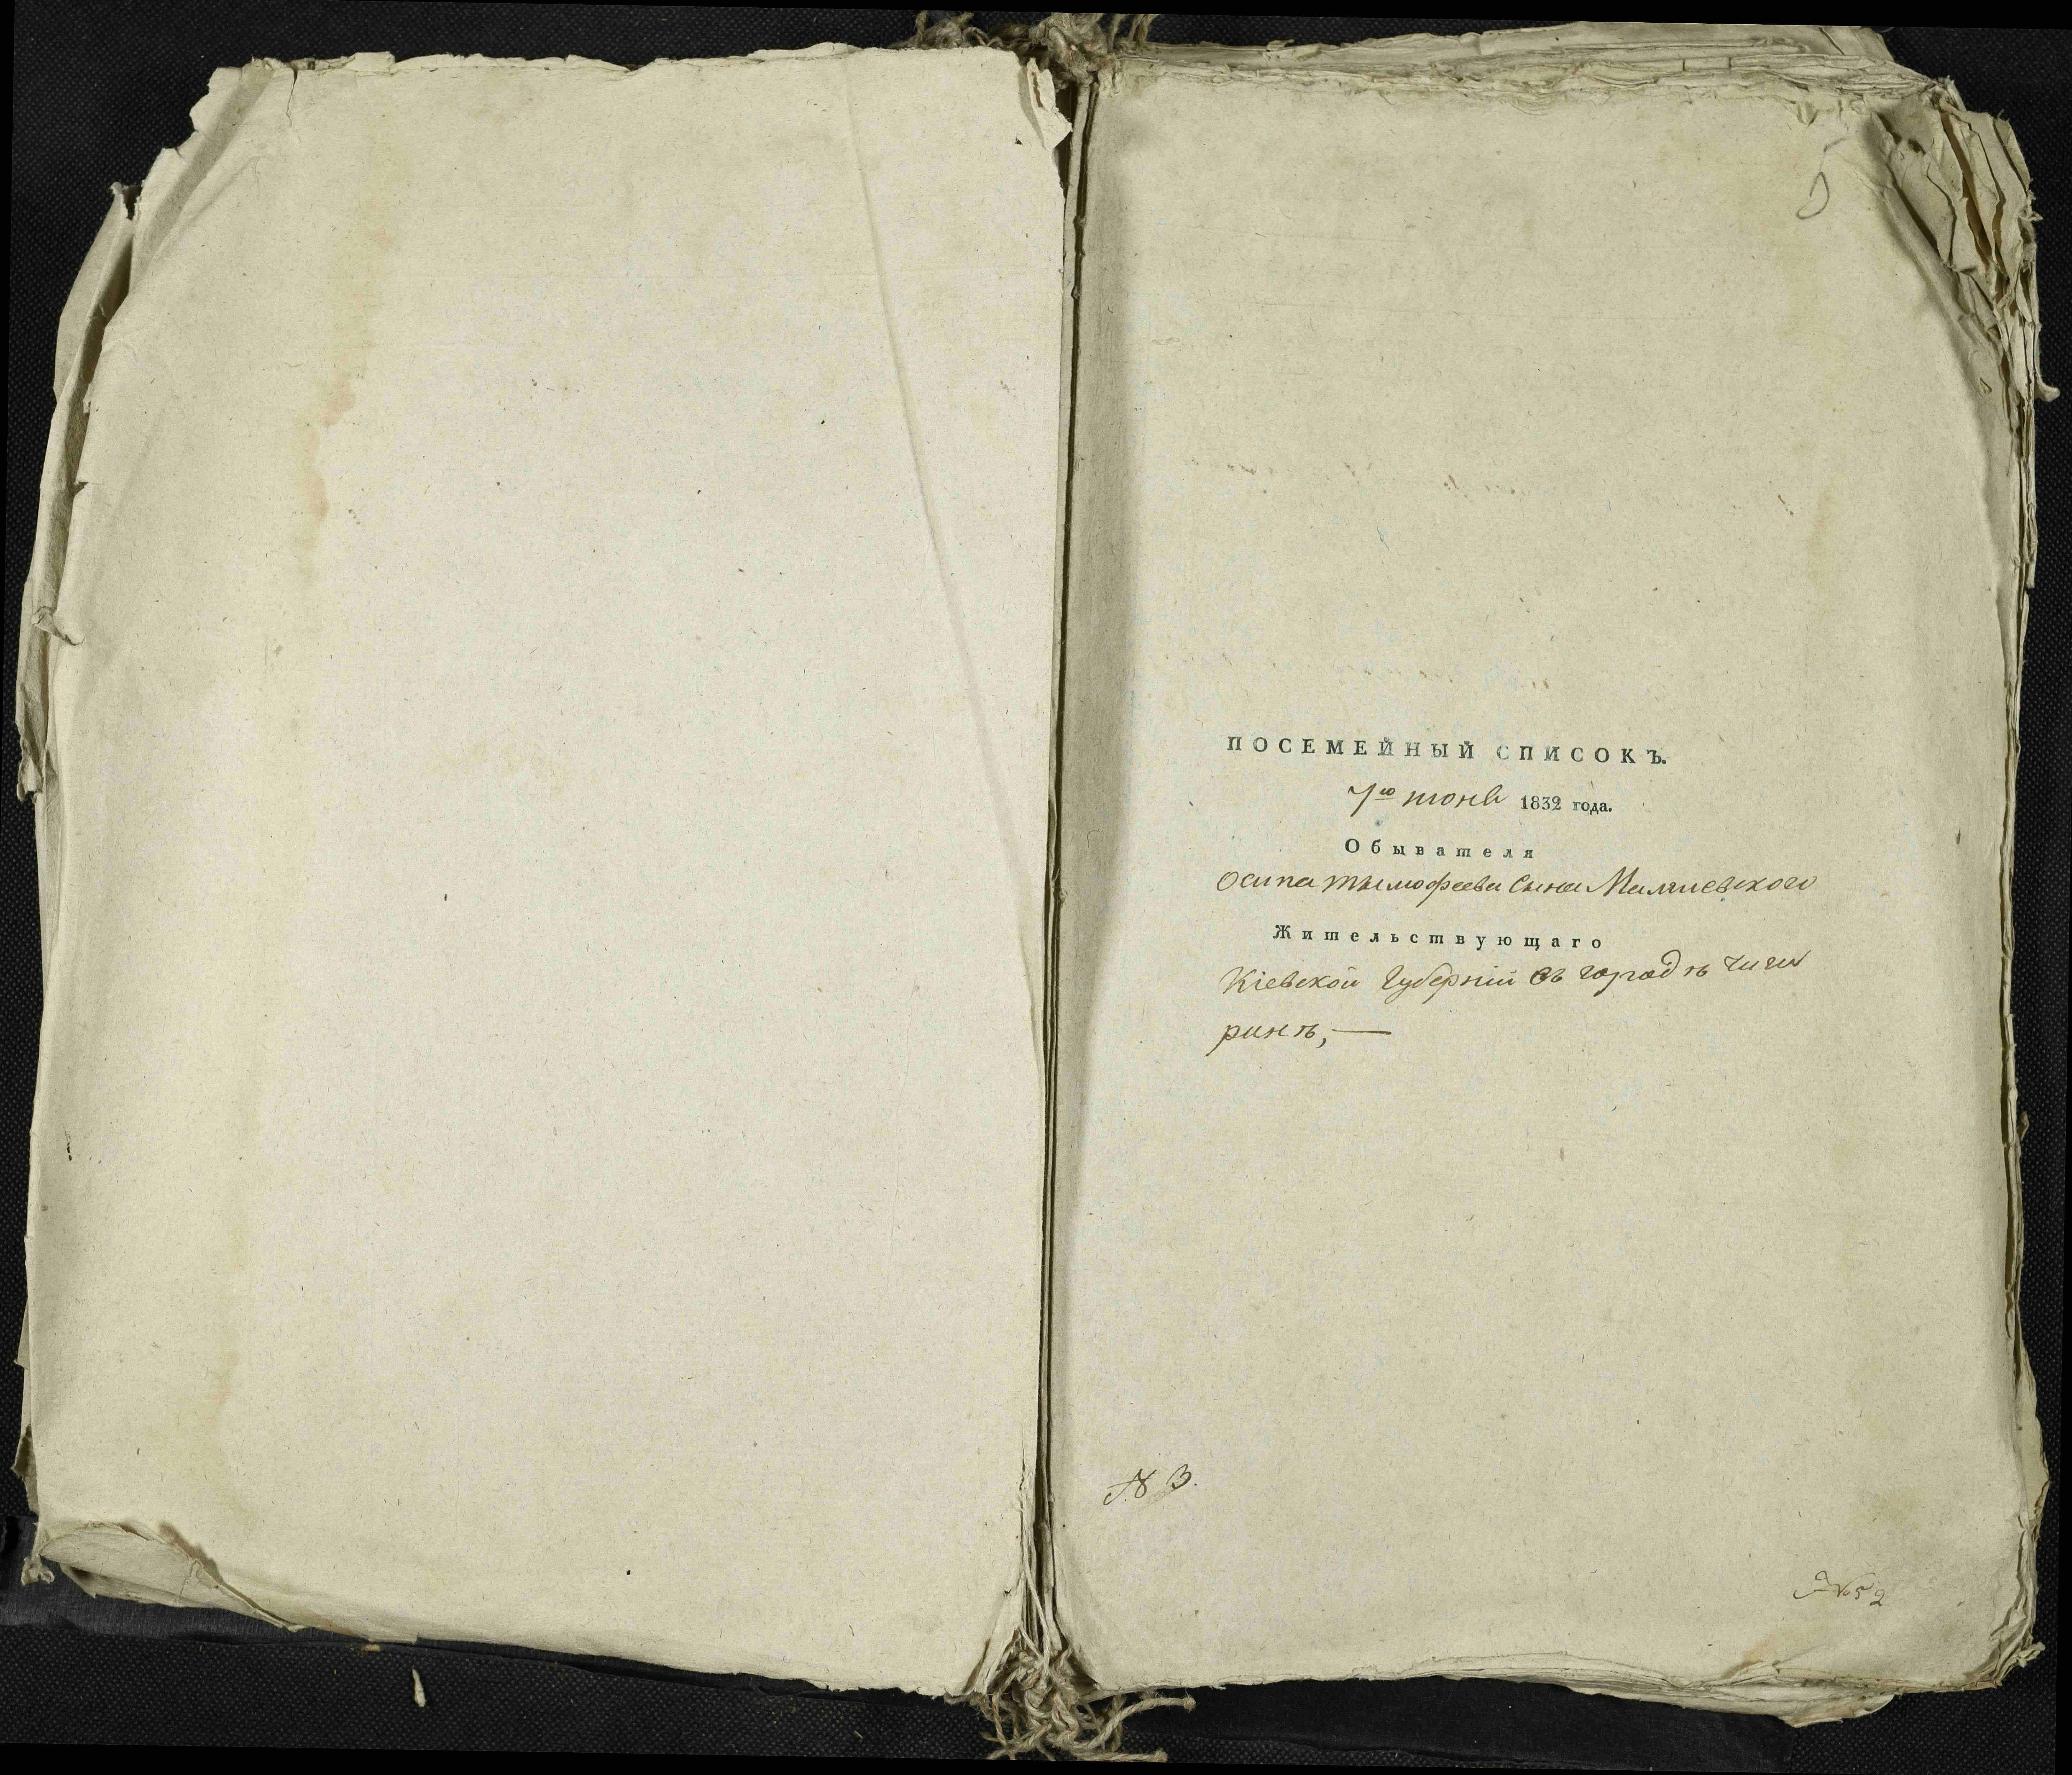 5
ПОСЕМЕЙНЫЙ СПИСОКЪ.
7го июня 1832 года.
Обывателя
Осипа тымофеева сына
Жительствующаго
Кіевской Губерніи въ городѣ Чиги
ринѣ,—
№ 3.
№ 52